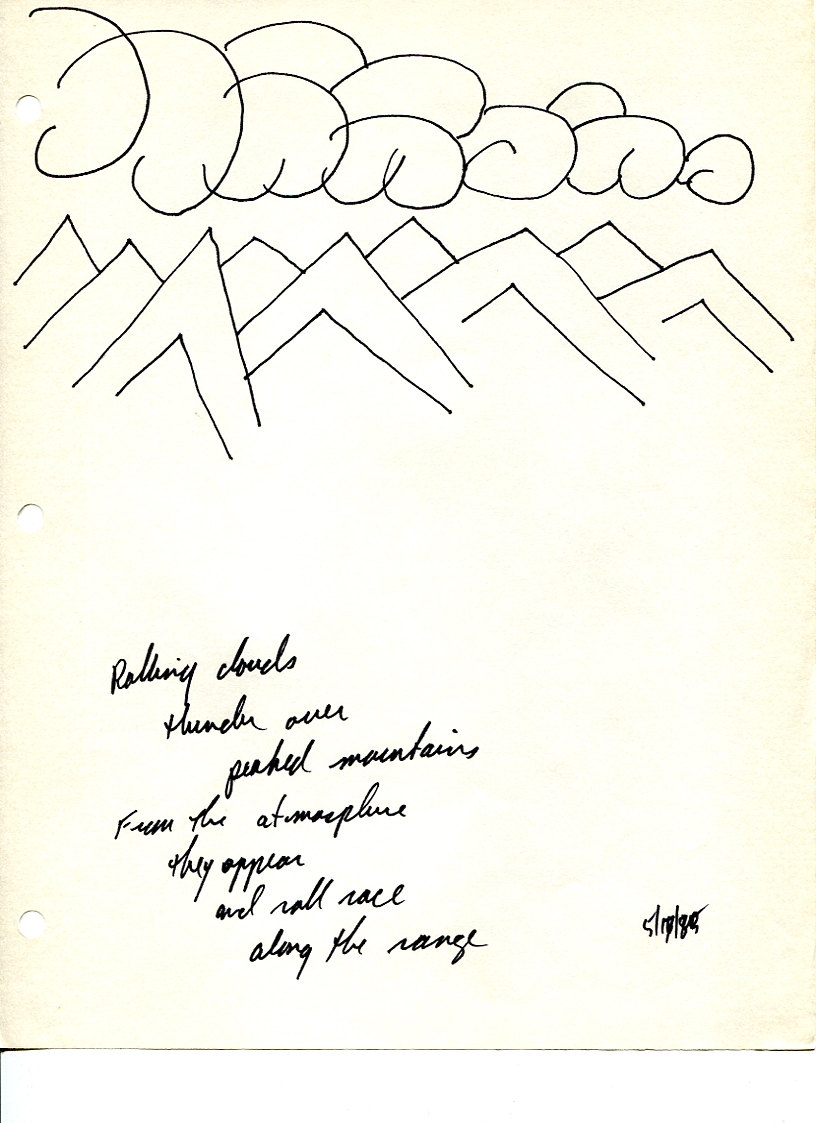 Rolling clouds
thunder over
peaked mountains
From the atmosphere
they appear
and roll race
along the range